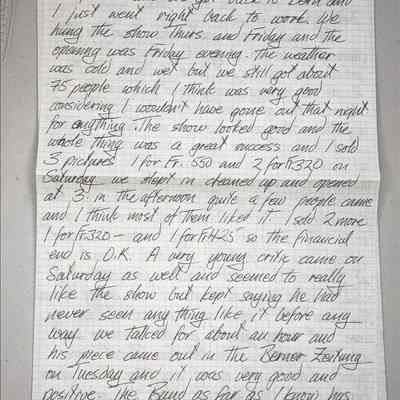 got back to Bern and
I just went right back to work. We
hung the show Thurs. and Friday and the
opening was Friday evening. The weather
was cold and wet but we still got about
75 people which I think was very good
considering I wouldn't have gone out that night
for anything. The show looked good and the
whole thing was a great success and I sold
3 pictures 1 for Fr. 550 and 2 for Fr320 on
Saturday we slept in cleaned up and opened
at 3. in the afternoon quite a few people came
and I think most of them liked it I sold 2 more
1 for Fr320 – and 1 for Fr425 so the financial
end is O.K. A very young critic came on
Saturday as well and seemed to really
like the show but kept saying he had
never seen anything like it before any
way we talked for about an hour and
his piece came out in the Berner Zeitung
on Tuesday and it was very good and
positive. The Bund as far as I know has